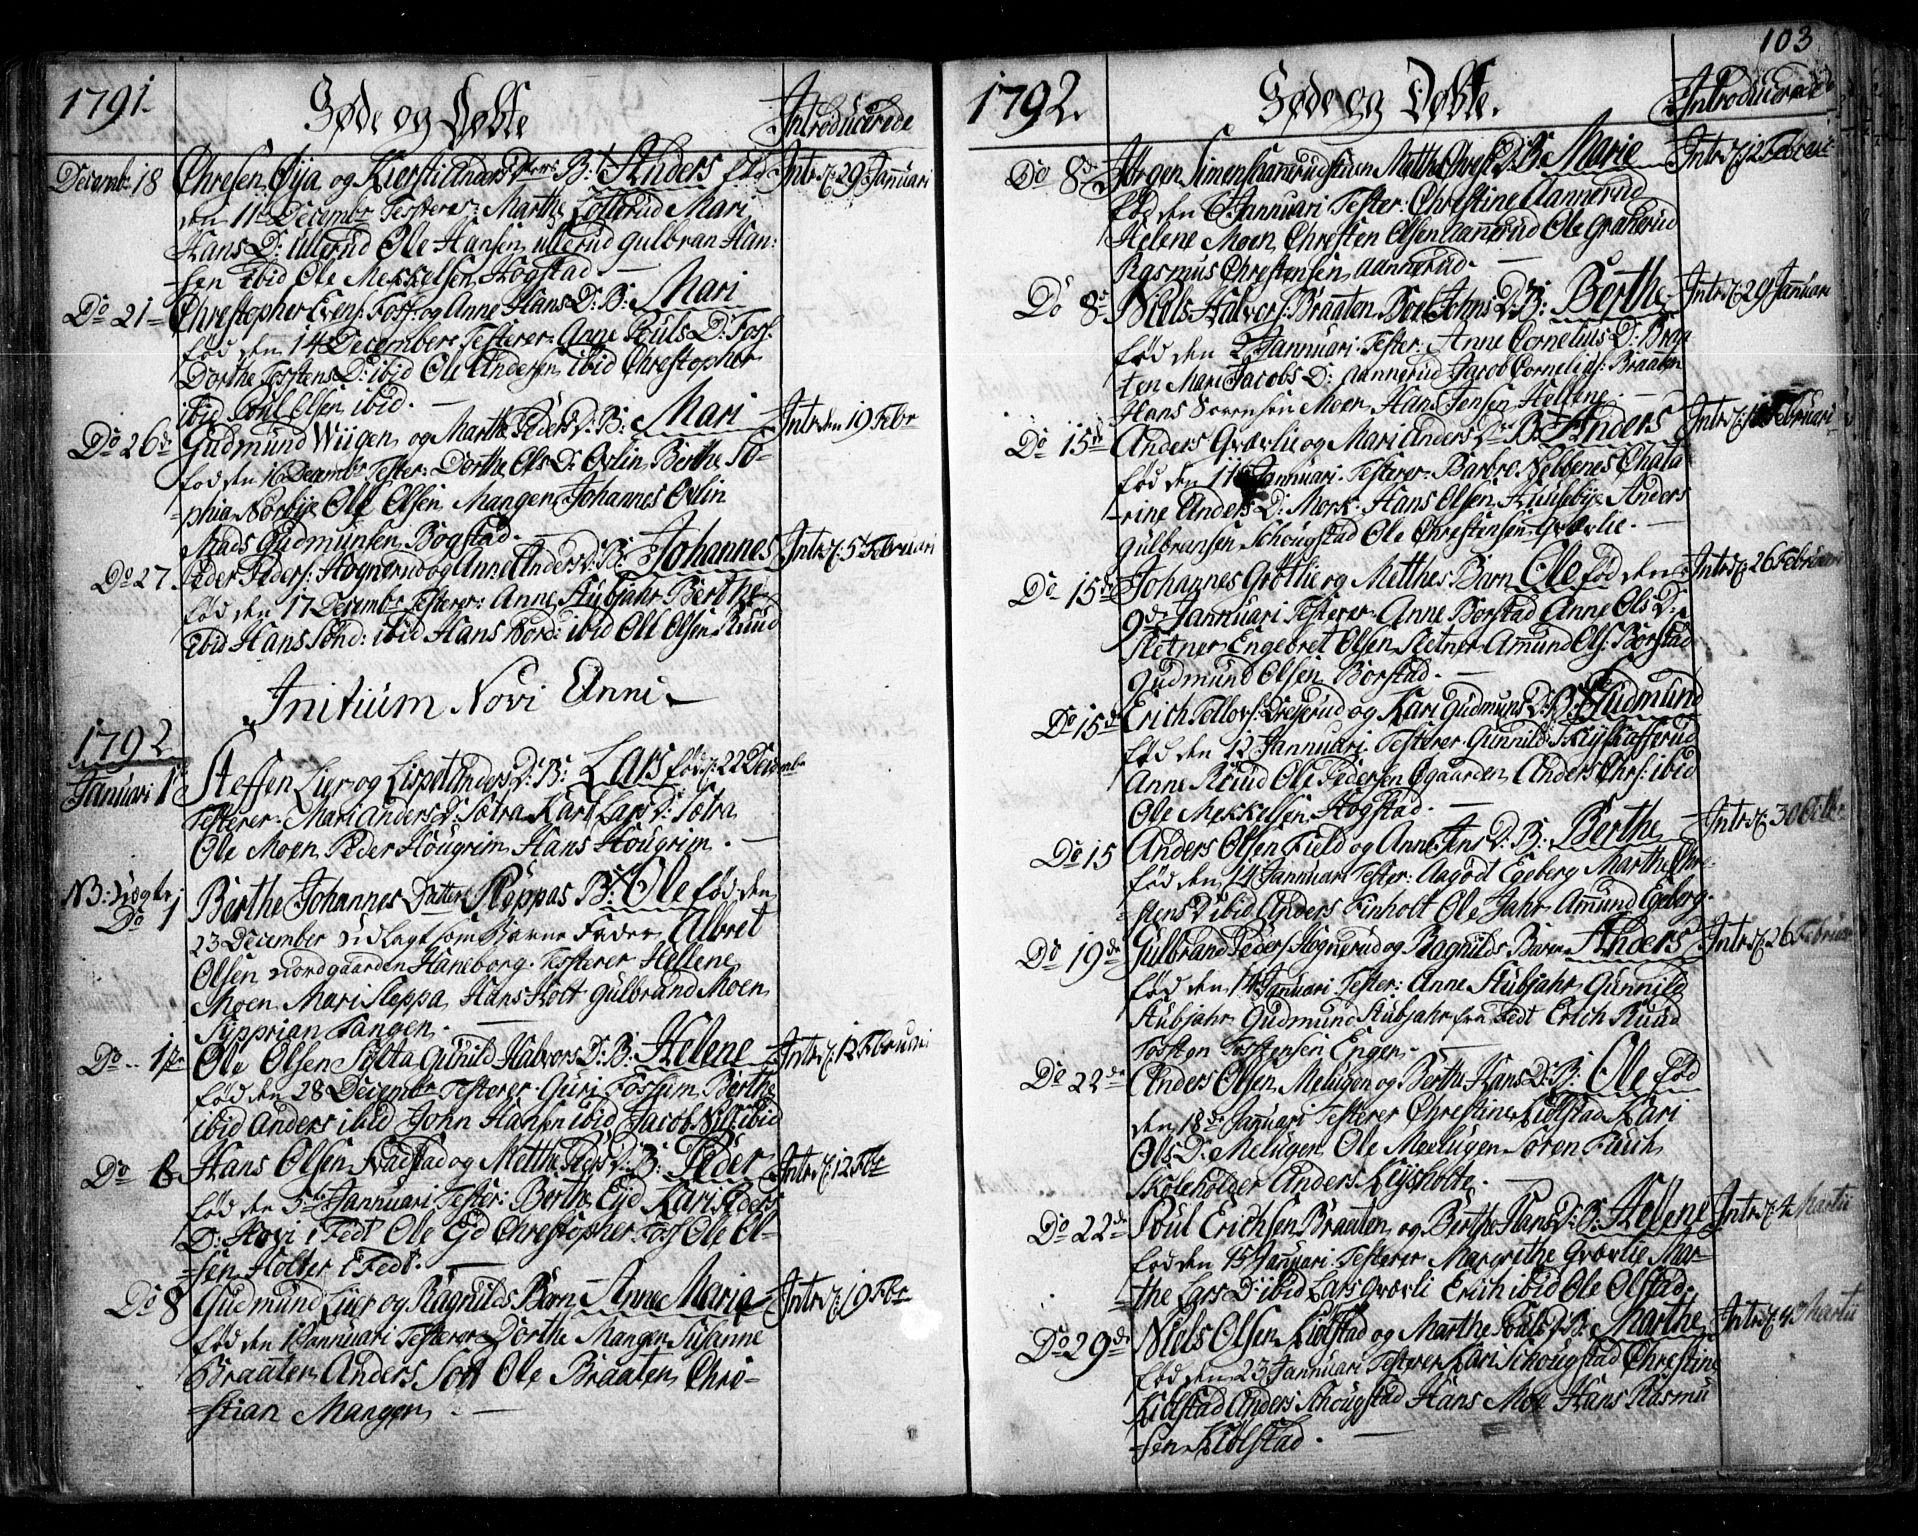 1791. Føde og Døbte Introducerede
Decembr 18 Chresten Øija og Kiersti Anders Dtters B: Anders fød Intr: d: 29 Januari
den 11te Decembr Testerer: Marthe Lotterud Mari
Hans D: Ullerud Ole Hansen Ullerud Gulbran Han:
sen ibid Ole Mekkelsen Hogstad. —
Do 21 Christopher Evens: Foss og Anne Hans D: B: Mari
fød den 14 December Testerer Anne Pouls D: Foss
Dorthe Torstens D: ibid Ole Andersen ibid Christopher
ibid Poul Olsen ibid. —
Do 26de Gudmund Wiigen og Marthe Peders D: B: Mari Intr den 19 Febr
fød den 16 Decembr Tester: Dorthe Ols D: Oslin Berthe So-
phia Norbye Ole Olsen Mangen Johannes Oslin
Mads Gudmunsen Bogstad. —
Do 27 Peder Peders: Hognerud og Anne Anders D: B: Johannes Intr: d: 5te Februari
fød den 17 Decembr Testerer: Anne Stubjahr Berthe
ibid Hans Sønd: ibid Hans Nord: ibid Ole Olsen Ruud
Initium Novi Anni
1792
Januari 1te Steffen Lier og Lispet Anders D: B: Lars fød d: 22 Decembr
Testerer: Mari Anders D: Sotra Kari Lars D: Sotra
Ole Moen Peder Hougrim Hans Hougrim. —
NB: Uægte
Do 1 Berthe Johannes Datter Sleppas B: Ole fød den
23 December Udlagt som Barne Fader Albret
Olsen Nordgaarden Haneborg. Testerer Hellene
Moen Mari Sleppa Hans Holt Gulbrand Moen
Sypprian Tangen. —
Do .. 1te Ole Olsen Sotta Gunild Halvors D: B: Helene Intr: d: 12 Februari
fød den 28 Decembr Testerer. Guri Fossum Berthe
ibid Anders ibid John Hansen ibid Jacob Nils: ibid
Do 6 Hans Olsen Fladstad og Metthe Peders D: B: Peder Intr: d: 12 Febr
fød den 3de Jannuari Tester: Berthe Eid Kari Peders
D: Hovi i Fedt Ole Eid Christopher Ole Ol-
sen Holter i Fedt. —
Do 8 Gudmund Lier og Ragnilds Barn Anne Maria Intr: d: 19 Febr
fød den 1 Jannuari Testerer Dorthe Mangen Susanne
Braaten Anders Ole Braaten Chri-
stian Mangen. —
103
1792. Føde og Døbte. Introducerede
Do 8de Jørgen Simensen Marthe Chrest: D: B: Marie Intr: d: 12 Februari
fød den 6 Jannuari Tester: Christine Aannerud
Helene Moen Christen Olsen Aannerud Ole Granerud
Rasmus Christensen Aannerud. —
Do 8de Niels Halvors: Braaten Boel Johns D: B: Berthe Intr: d: 29 Januari
fød den 2 Jannuari. Tester: Anne Cornelius D: Braa
ten Mari Jacobs D: Aannerud Jacob Cornelius: Braaten
Hans Sørensen Moen Hans Jensen Hellene. —
Do 15de Anders Græslie og Mari Anders Dr B: Anders Intr: d: Februari
fød den 11te Januari. Testerer. Barbre Nebbenes Chata-
rine Anders D: Mork Hans Olsen Huuseby Anders
Gulbransen Schougstad Ole Chrestensen Græslie. —
Do 15de Johannes Grøtlie og Metthes Barn Ole fød den Intr: d: 26 Februari
9de Jannuari Testerer. Anne Borstad Anne Ols D:
Sletner Engebret Olsen Sletner Amund Ols: Borstad
Gudmund Olsen Borstad. —
Do 15de Erich Tollovs: Dreyerud og Kari Gudmuns D: B: Gudmund
fød den 12 Jannuari. Testerer Gunnild
Anne Ruud Ole Pedersen Egaarden Anders Chrs: ibid
Ole Mekkelsen Hogstad. —
Do 15 Anders Olsen Field og Anne D: B: Berthe Intr: d: 30
fød den 14 Jannuari Tester: Aagodt Egeberg Marthe Chre
stens D: ibid Anders Finholt Ole Jahr Amund Egeberg.
Do 19de Gulbrand Peders: Hognerud og Ragnilds Barn Anders Intr: d: 26 Februari
fød den 14 Januari. Tester: Anne Stubjahr Gunnild
Stubjahr Gudmund Stubjahr fra Fedt Erich Ruud
Torsten Torstensen Engen. —
Do 22de Anders Olsen Melugen og Berthe Hans D: B: Ole fød
den 18de Januari Testerer Christine Kiolstad Kari
Ols D: Melugen Ole Melugen Søren Fauch
Skoleholder Anders Lysholte. —
Do 22de Poul Erichsen Braaten og Berthe Hans D: B: Hellene Intr: d: 4 Martii
fød den 15 Januari. Testerer Margrethe Græslie Mar-
the Lars D: ibid Lars Græsli Erich ibid Ole Olstad.
Do 29de Niels Olsen Kiolstad og Marthe Pouls D: B: Marthe Intr: d: 4 Martii
fød den 23 Jannuari Testerer Kari Schougstad Christine
Kiolstad Anders Schougstad Hans Moe Hans Rasmu
sen Kiolstad. —